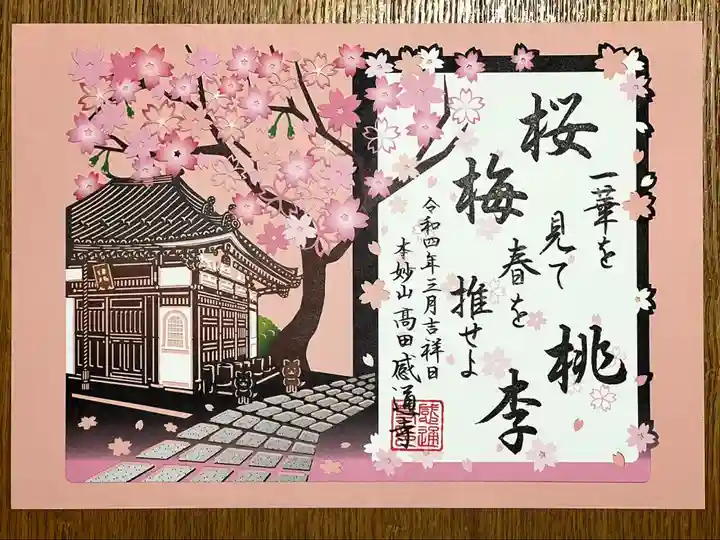 桜梅桃李
一華を
見て
春を
推せよ
令和四年三月吉祥日
本妙山高田感通寺
感通寺